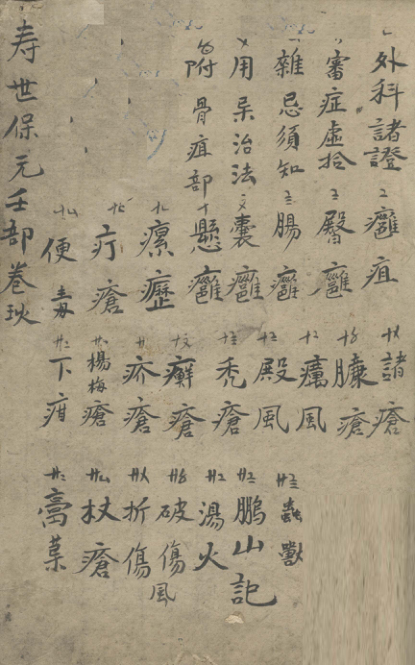 外科諸證
審症虛拾
雜忌須知
用呆治法
附骨疽部
癰疽
臀癰
腸癰
囊癰
懸癰
瘰癧
疔瘡
便毒
諸瘡
臁瘡
癘風
殿風
禿瘡
癬瘡
疥瘡
楊梅瘡
下疳
蟲獸
鵬山記
湯火
破傷風
折傷
杖瘡
膏葉
寿世保元壬部卷玖